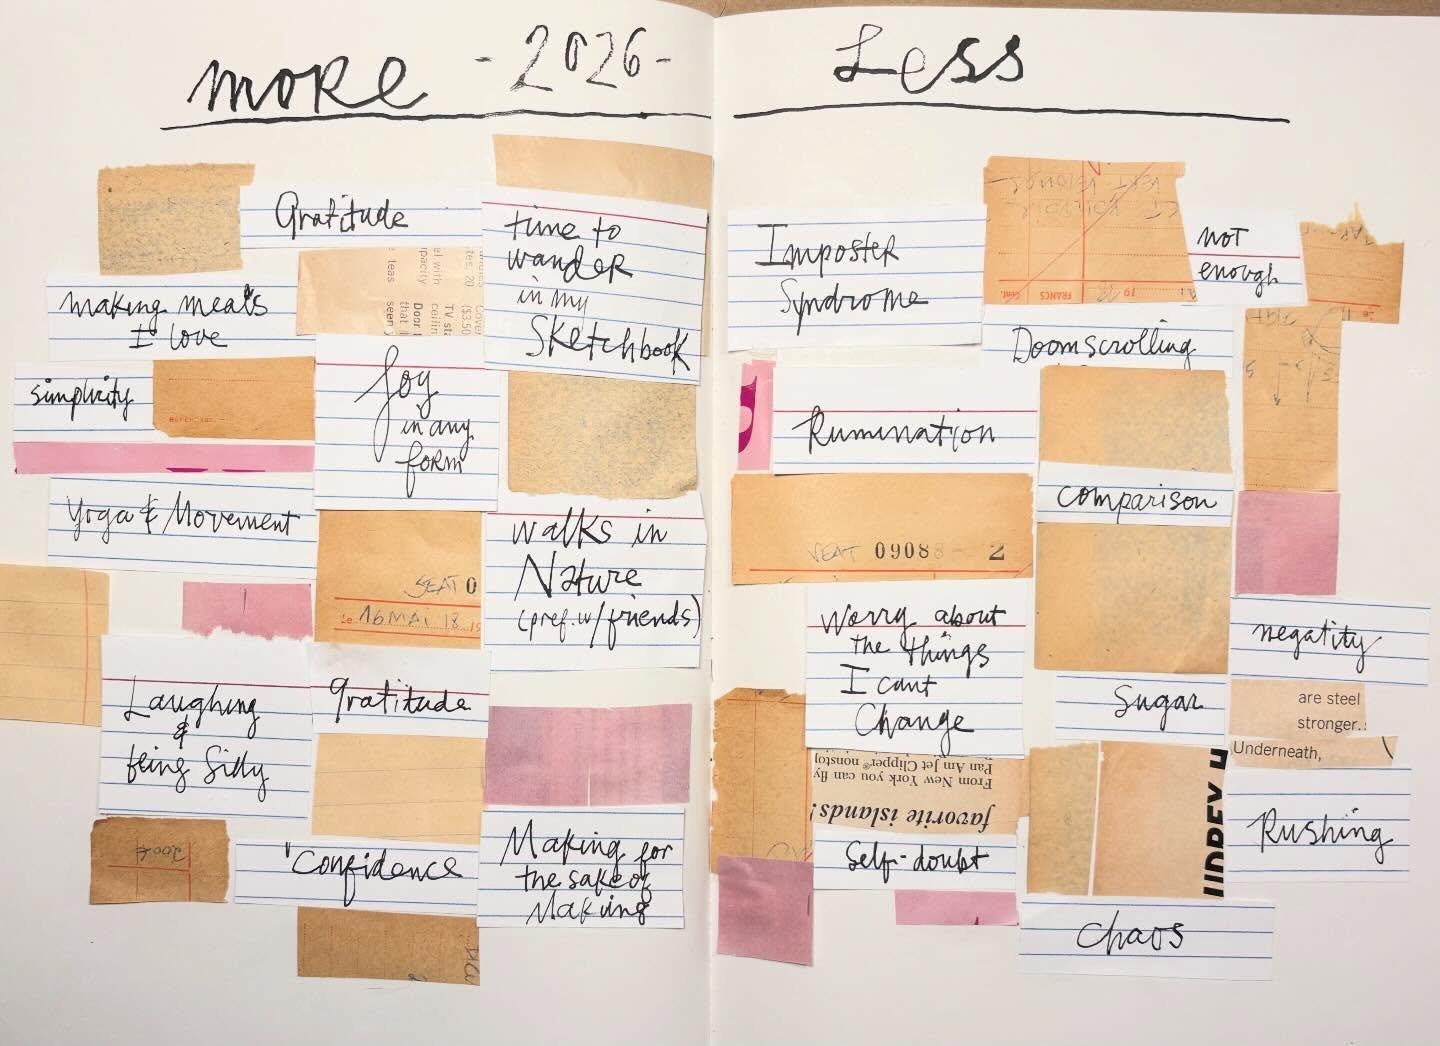 more
-2026-
Less
Gratitude
time to
wander
in my
Sketchbook
making meals
I love
simplicity
Joy
in any
form
Yoga & Movement
walks in
Nature
(pref. w/friends)
SEAT 0
Le 16 MAI 18
Laughing
&
being Silly
gratitude
Confidence
Making for
the sake of
Making
Imposter
Syndrome
not
enough
FRANCS
Cent.
Doomscrolling
Rumination
comparison
SEAT 09088 2
Worry about
the things
I cant
Change
negatity
Sugar
are steel
stronger.
Underneath,
From New York you can fly
Pan Am Jet Clipper® nonstop
favorite islands!
Self-doubt
Rushing
Chaos